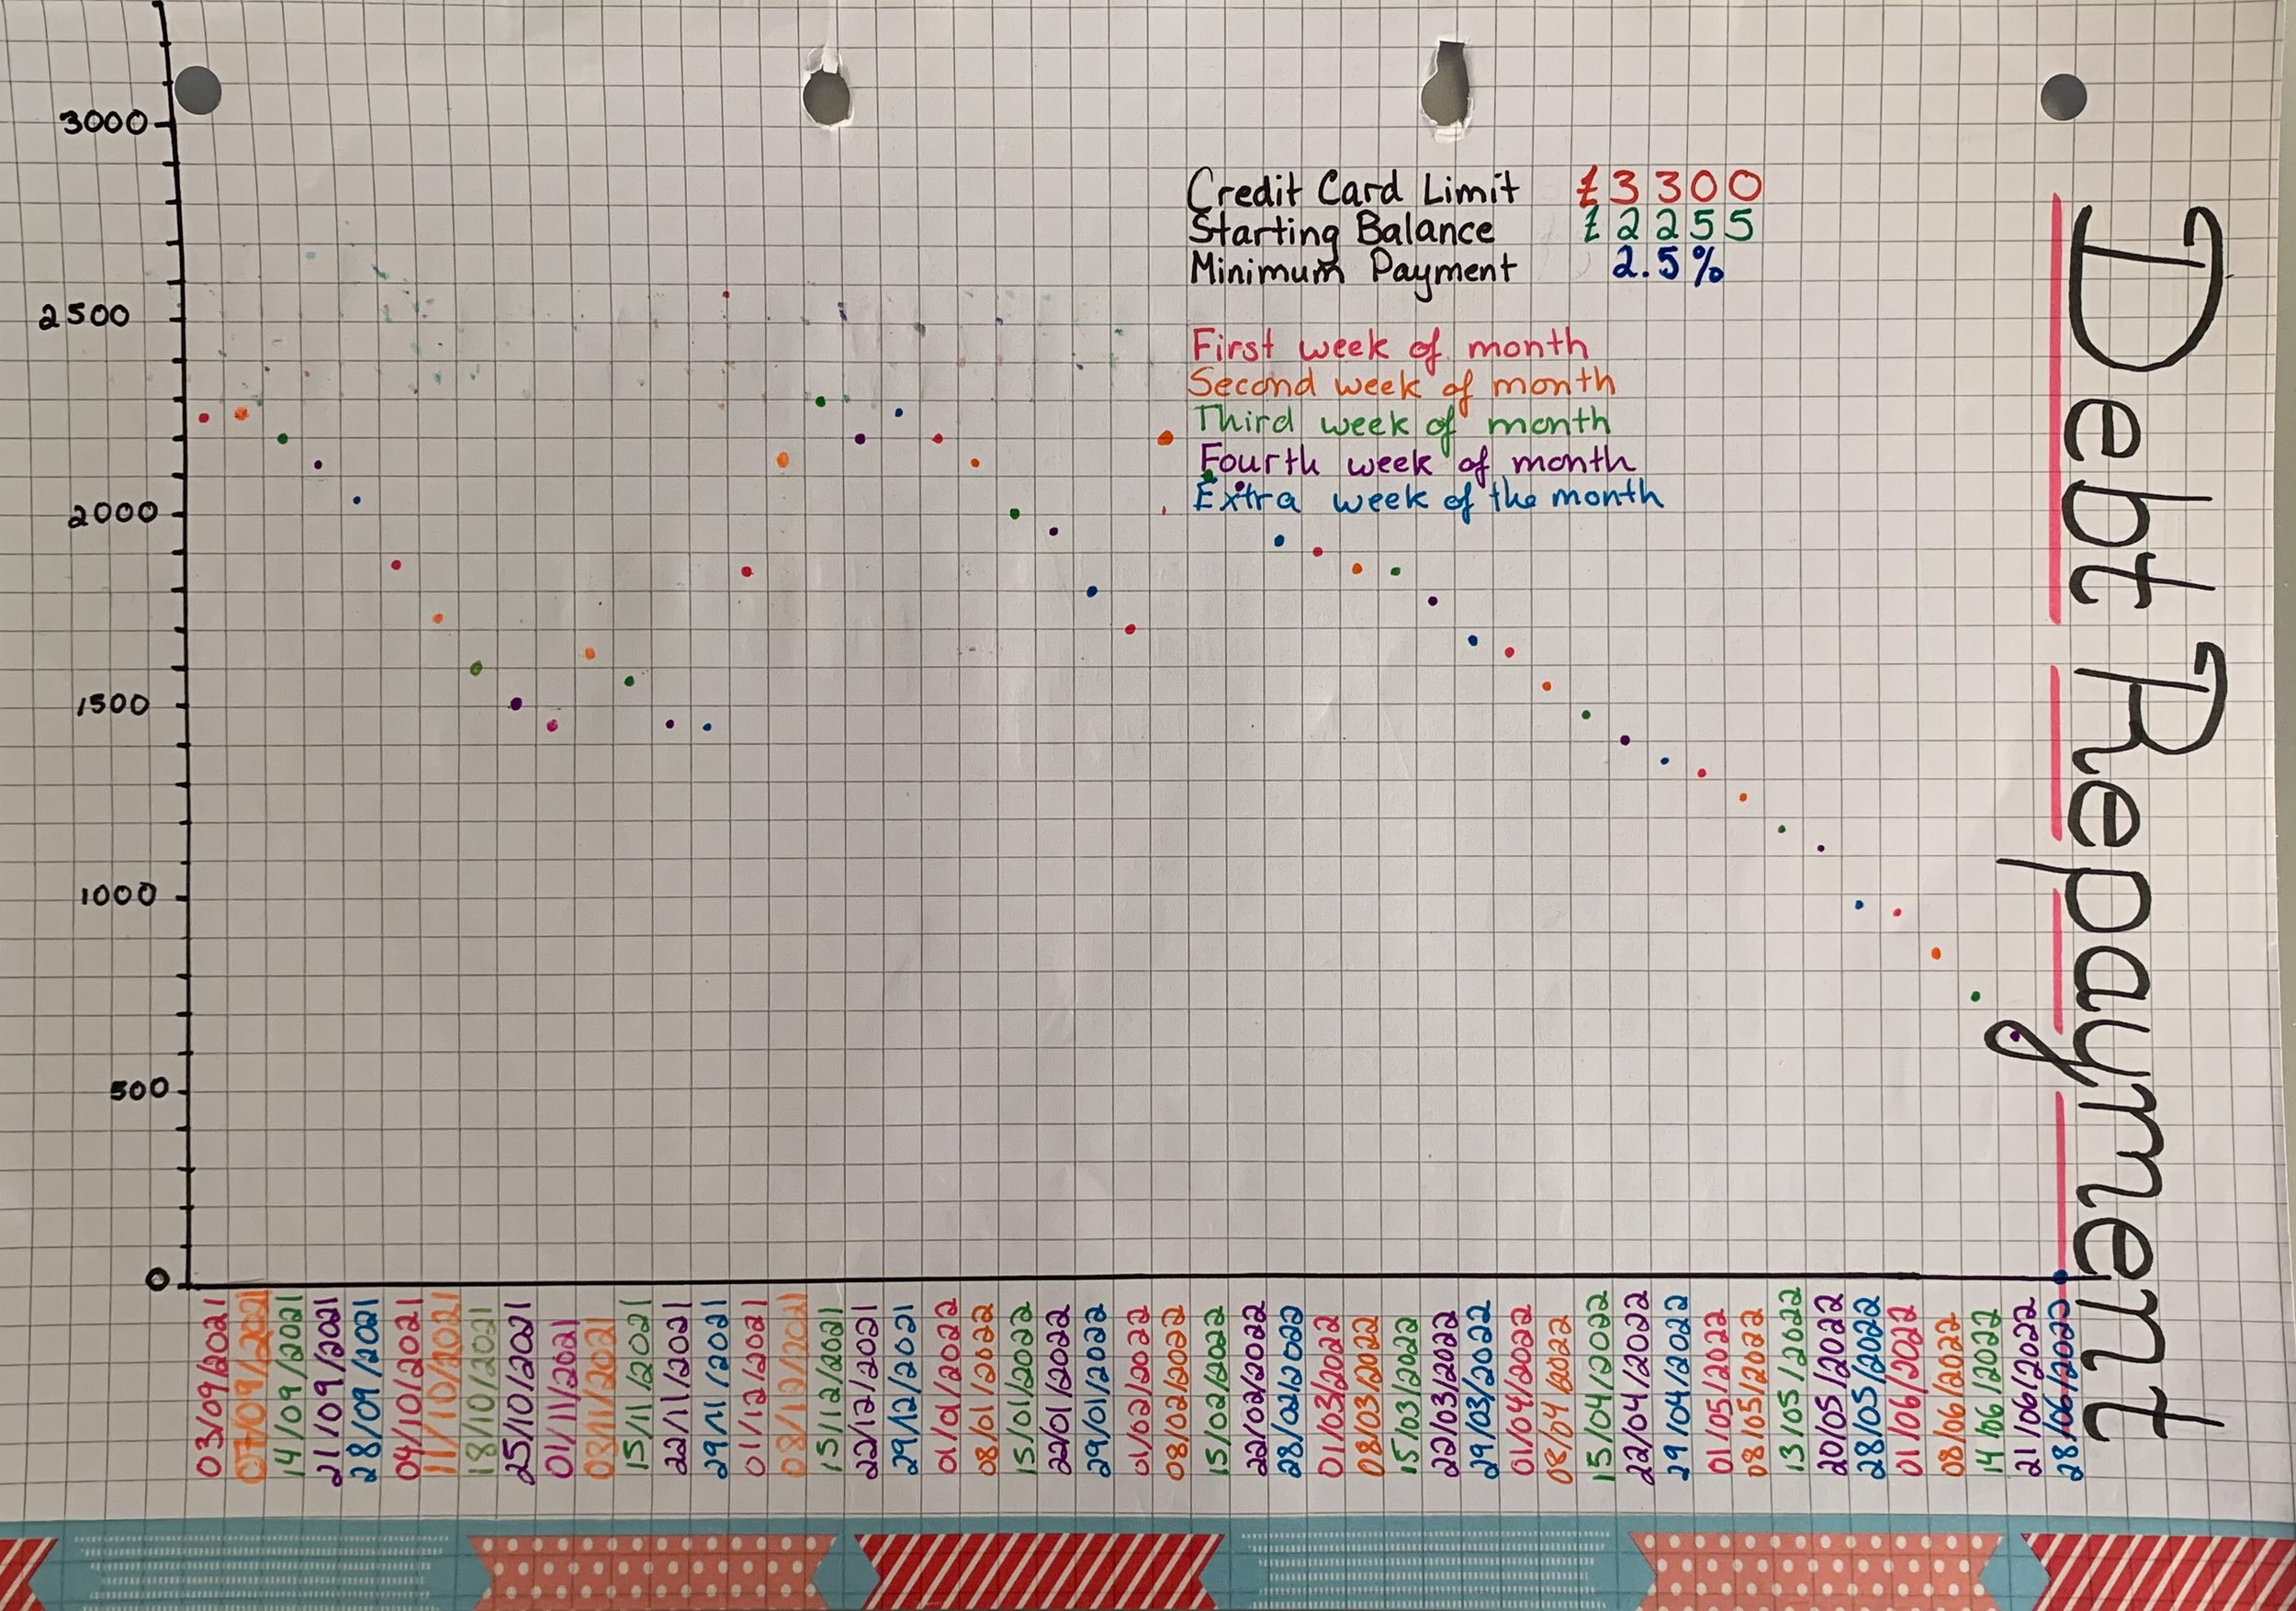 3000
2500
2000
1500
1000
500
0
Credit Card Limit £3300
Starting Balance £2255
Minimum Payment 2.5%
First week of month
Second week of month
Third week of month
Fourth week of month
Extra week of the month
Debt Repayment
03/09/2021
07/09/2021
14/09/2021
21/09/2021
28/09/2021
04/10/2021
11/10/2021
18/10/2021
25/10/2021
01/11/2021
08/11/2021
15/11/2021
22/11/2021
29/11/2021
01/12/2021
08/12/2021
15/12/2021
22/12/2021
29/12/2021
01/01/2022
08/01/2022
15/01/2022
22/01/2022
29/01/2022
01/02/2022
08/02/2022
15/02/2022
22/02/2022
28/02/2022
01/03/2022
08/03/2022
15/03/2022
22/03/2022
29/03/2022
01/04/2022
08/04/2022
15/04/2022
22/04/2022
29/04/2022
01/05/2022
08/05/2022
13/05/2022
20/05/2022
28/05/2022
01/06/2022
08/06/2022
14/06/2022
21/06/2022
28/06/2022